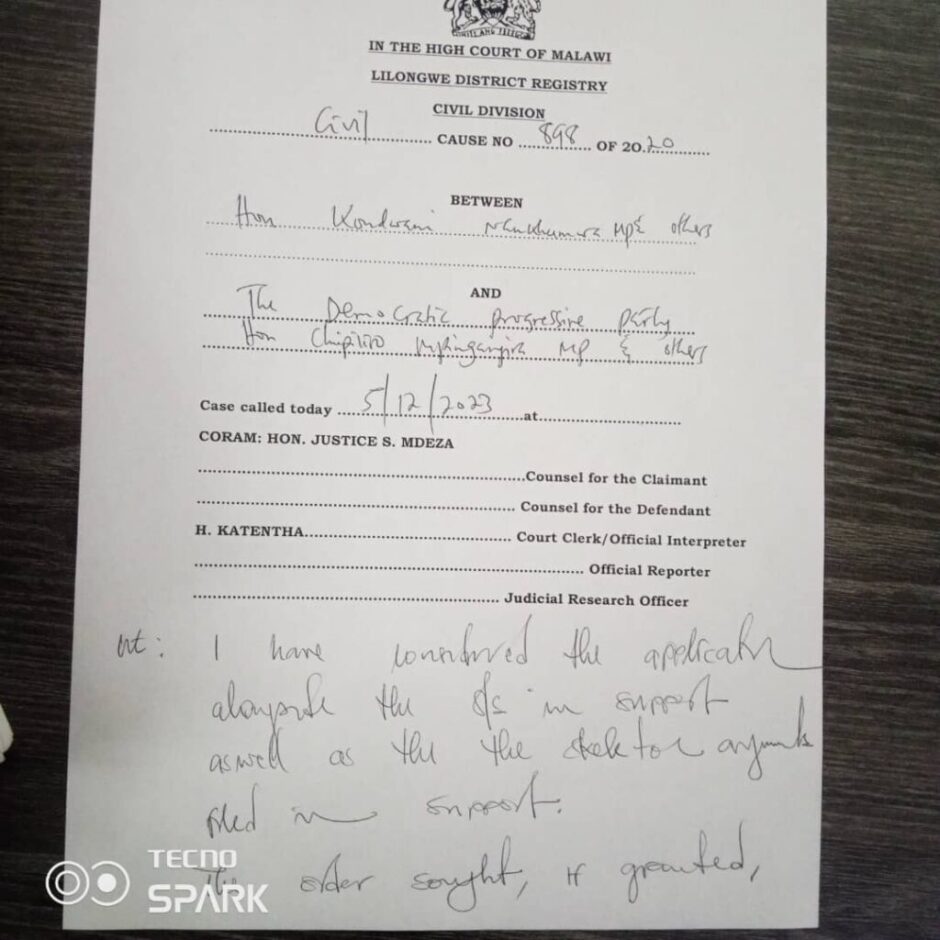 IN THE HIGH COURT OF MALAWI
LILONGWE DISTRICT REGISTRY
CIVIL DIVISION
Civil CAUSE NO 898 OF 20.20
BETWEEN
Hon Kondwani Nankhumwa MP & others
AND
The Democratic progressive party
Hon Chipiliro Mpinganjira MP & others
Case called today 5/12/2023 at
CORAM: HON. JUSTICE S. MDEZA
Counsel for the Claimant
Counsel for the Defendant
H. KATENTHA Court Clerk/Official Interpreter
Official Reporter
Judicial Research Officer
I have considered the application
alongside the s/s in support
aswell as the the skeleton arguments
filed in support.
The order sought, if granted,
TECNO
SPARK